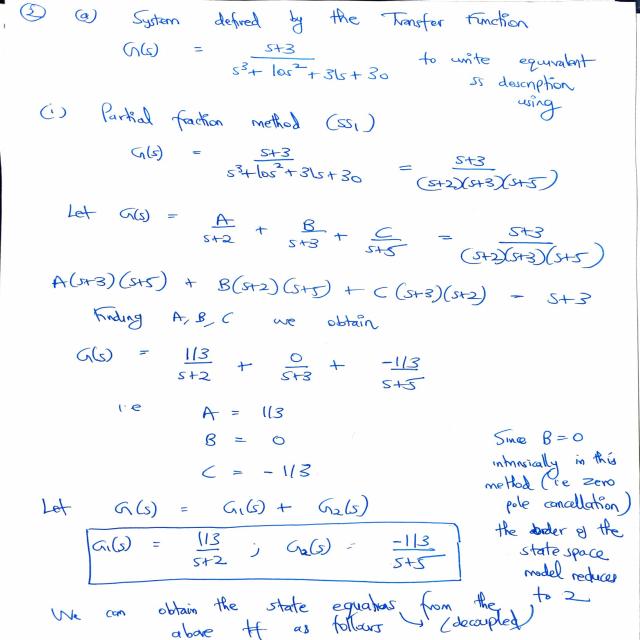 ② (a) System defined by the Transfer Function
G(s) = s+3 / s³ + 10s² + 31s + 30 to write equivalent
ss description
using
(i) Partial fraction method (SS₁)
G(s) = s+3 / s³+10s²+31s+30 = s+3 / (s+2)(s+3)(s+5)
Let G(s) = A / s+2 + B / s+3 + C / s+5 = s+3 / (s+2)(s+3)(s+5)
A(s+3)(s+5) + B(s+2)(s+5) + C(s+3)(s+2) = s+3
Finding A, B, C we obtain
G(s) = 1/3 / s+2 + 0 / s+3 + -1/3 / s+5
i.e A = 1/3
B = 0
C = -1/3
Since B=0
intrinsically in this
method (ie zero
pole cancellation)
the order of the
state space
model reduces
to 2
Let G(s) = G₁(s) + G₂(s)
G₁(s) = 1/3 / s+2 ; G₂(s) = -1/3 / s+5
We can obtain the state equations from the
above tf as follows (decoupled)